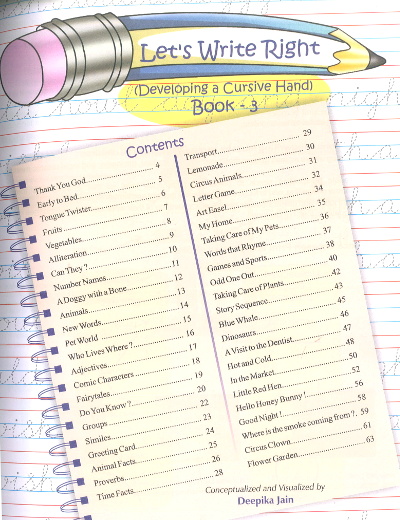 Let's Write Right
(Developing a Cursive Hand)
Book - 3
Contents
Thank You God 4
Early to Bed 5
Tongue Twister 6
Fruits 7
Vegetables 8
Alliteration 9
Can They? 10
Number Names 11
A Doggy with a Bone 12
Animals 13
New Words 14
Pet World 15
Who Lives Where? 16
Adjectives 17
Comic Characters 18
Fairytales 19
Do You Know? 20
Groups 22
Similes 23
Greeting Card 24
Animal Facts 25
Proverbs 26
Time Facts 28
Transport 29
Lemonade 30
Circus Animals 31
Letter Game 32
Art Easel 34
My Home 35
Taking Care of My Pets 36
Words that Rhyme 37
Games and Sports 38
Odd One Out 40
Taking Care of Plants 42
Story Sequence 43
Blue Whale 45
Dinosaurs 46
A Visit to the Dentist 47
Hot and Cold 48
In the Market 50
Little Red Hen 52
Hello Honey Bunny! 56
Good Night! 58
Where is the smoke coming from? 59
Circus Clown 61
Flower Garden 63
Conceptualized and Visualized by
Deepika Jain